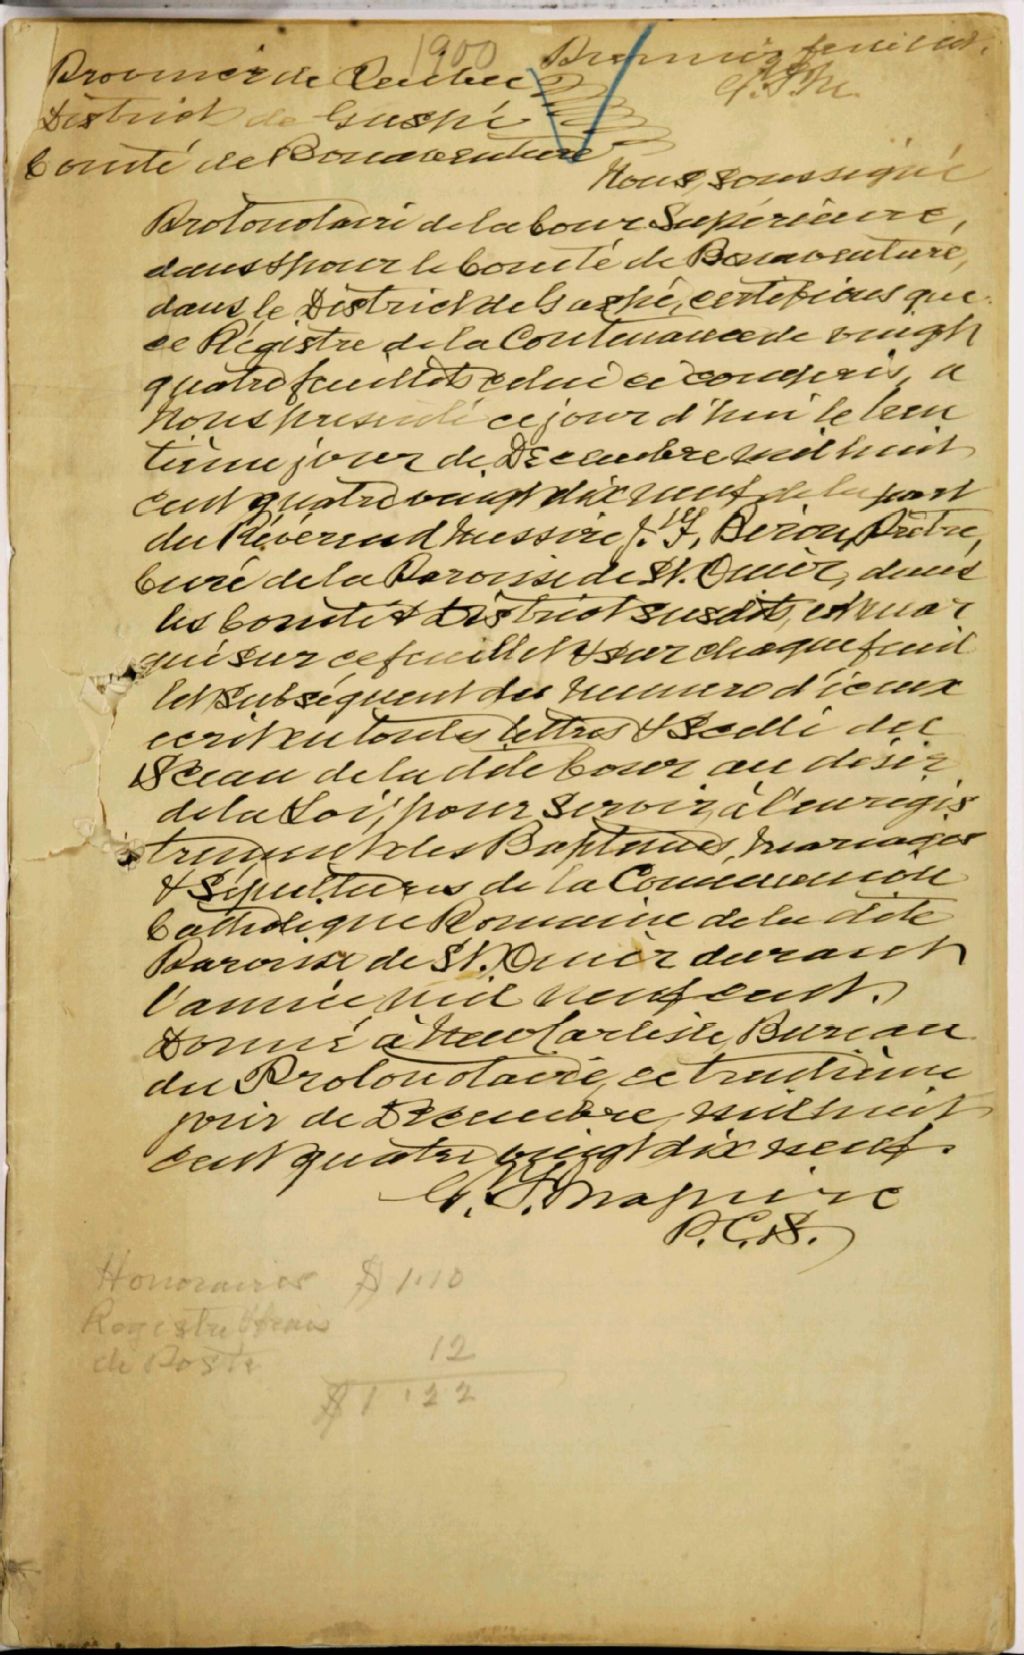 1900
Premier feuillet.
Province de Quebec
District de Gaspé
Comté de Bonaventure
Nous, soussigné
Protonotaire de la Cour Supérieure,
dans & pour le Comté de Bonaventure,
dans le District de Gaspé, certifions que
ce Régistre de la Contenance de vingt
quatre feuillets celui ci compris, a
Nous presenté ce jour d'hui le tren
tième jour de Décembre mil huit
cent quatre vingt dix neuf de la part
du Révérend Messire J. Prêtre,
Curé de la Paroisse de St. Omer, dans
les Comté & District susdits, est mar
qué sur ce feuillet & sur chaque feuil
let subséquent du numero d'iceux
ecrit en toutes lettres & Scellé du
Sceau de la dite Cour au désir
de la Loi, pour servir à l'enregis
trement des Baptemes, mariages
& Sépultures de la Communion
Catholique Romaine de la dite
Paroisse de St. Omer durant
l'année mil neuf cent.
Donné à New Carlisle, Bureau
du Protonotaire, ce trentième
jour de Décembre mil huit
cent quatre vingt dix neuf.
P.C.S.
Honoraires $1.10
Registre & frais
de Poste 12
$1.22